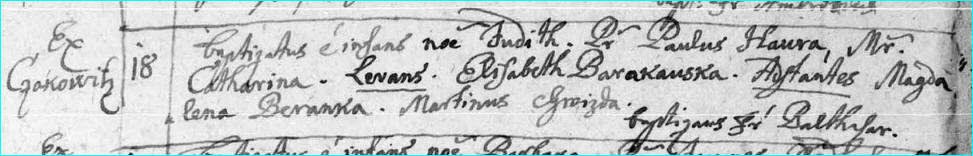 Ex
Czakowitz
18
baptizatus é infans noe Judith. Pr Paulus Havra, Mr.
Catharina. Levans. Elisabeth Barakauska. Adstantes Magda
lena Beranka. Martinus Hwizda.
baptizans Fr Balthasar.
Ex
infans noe Barbara